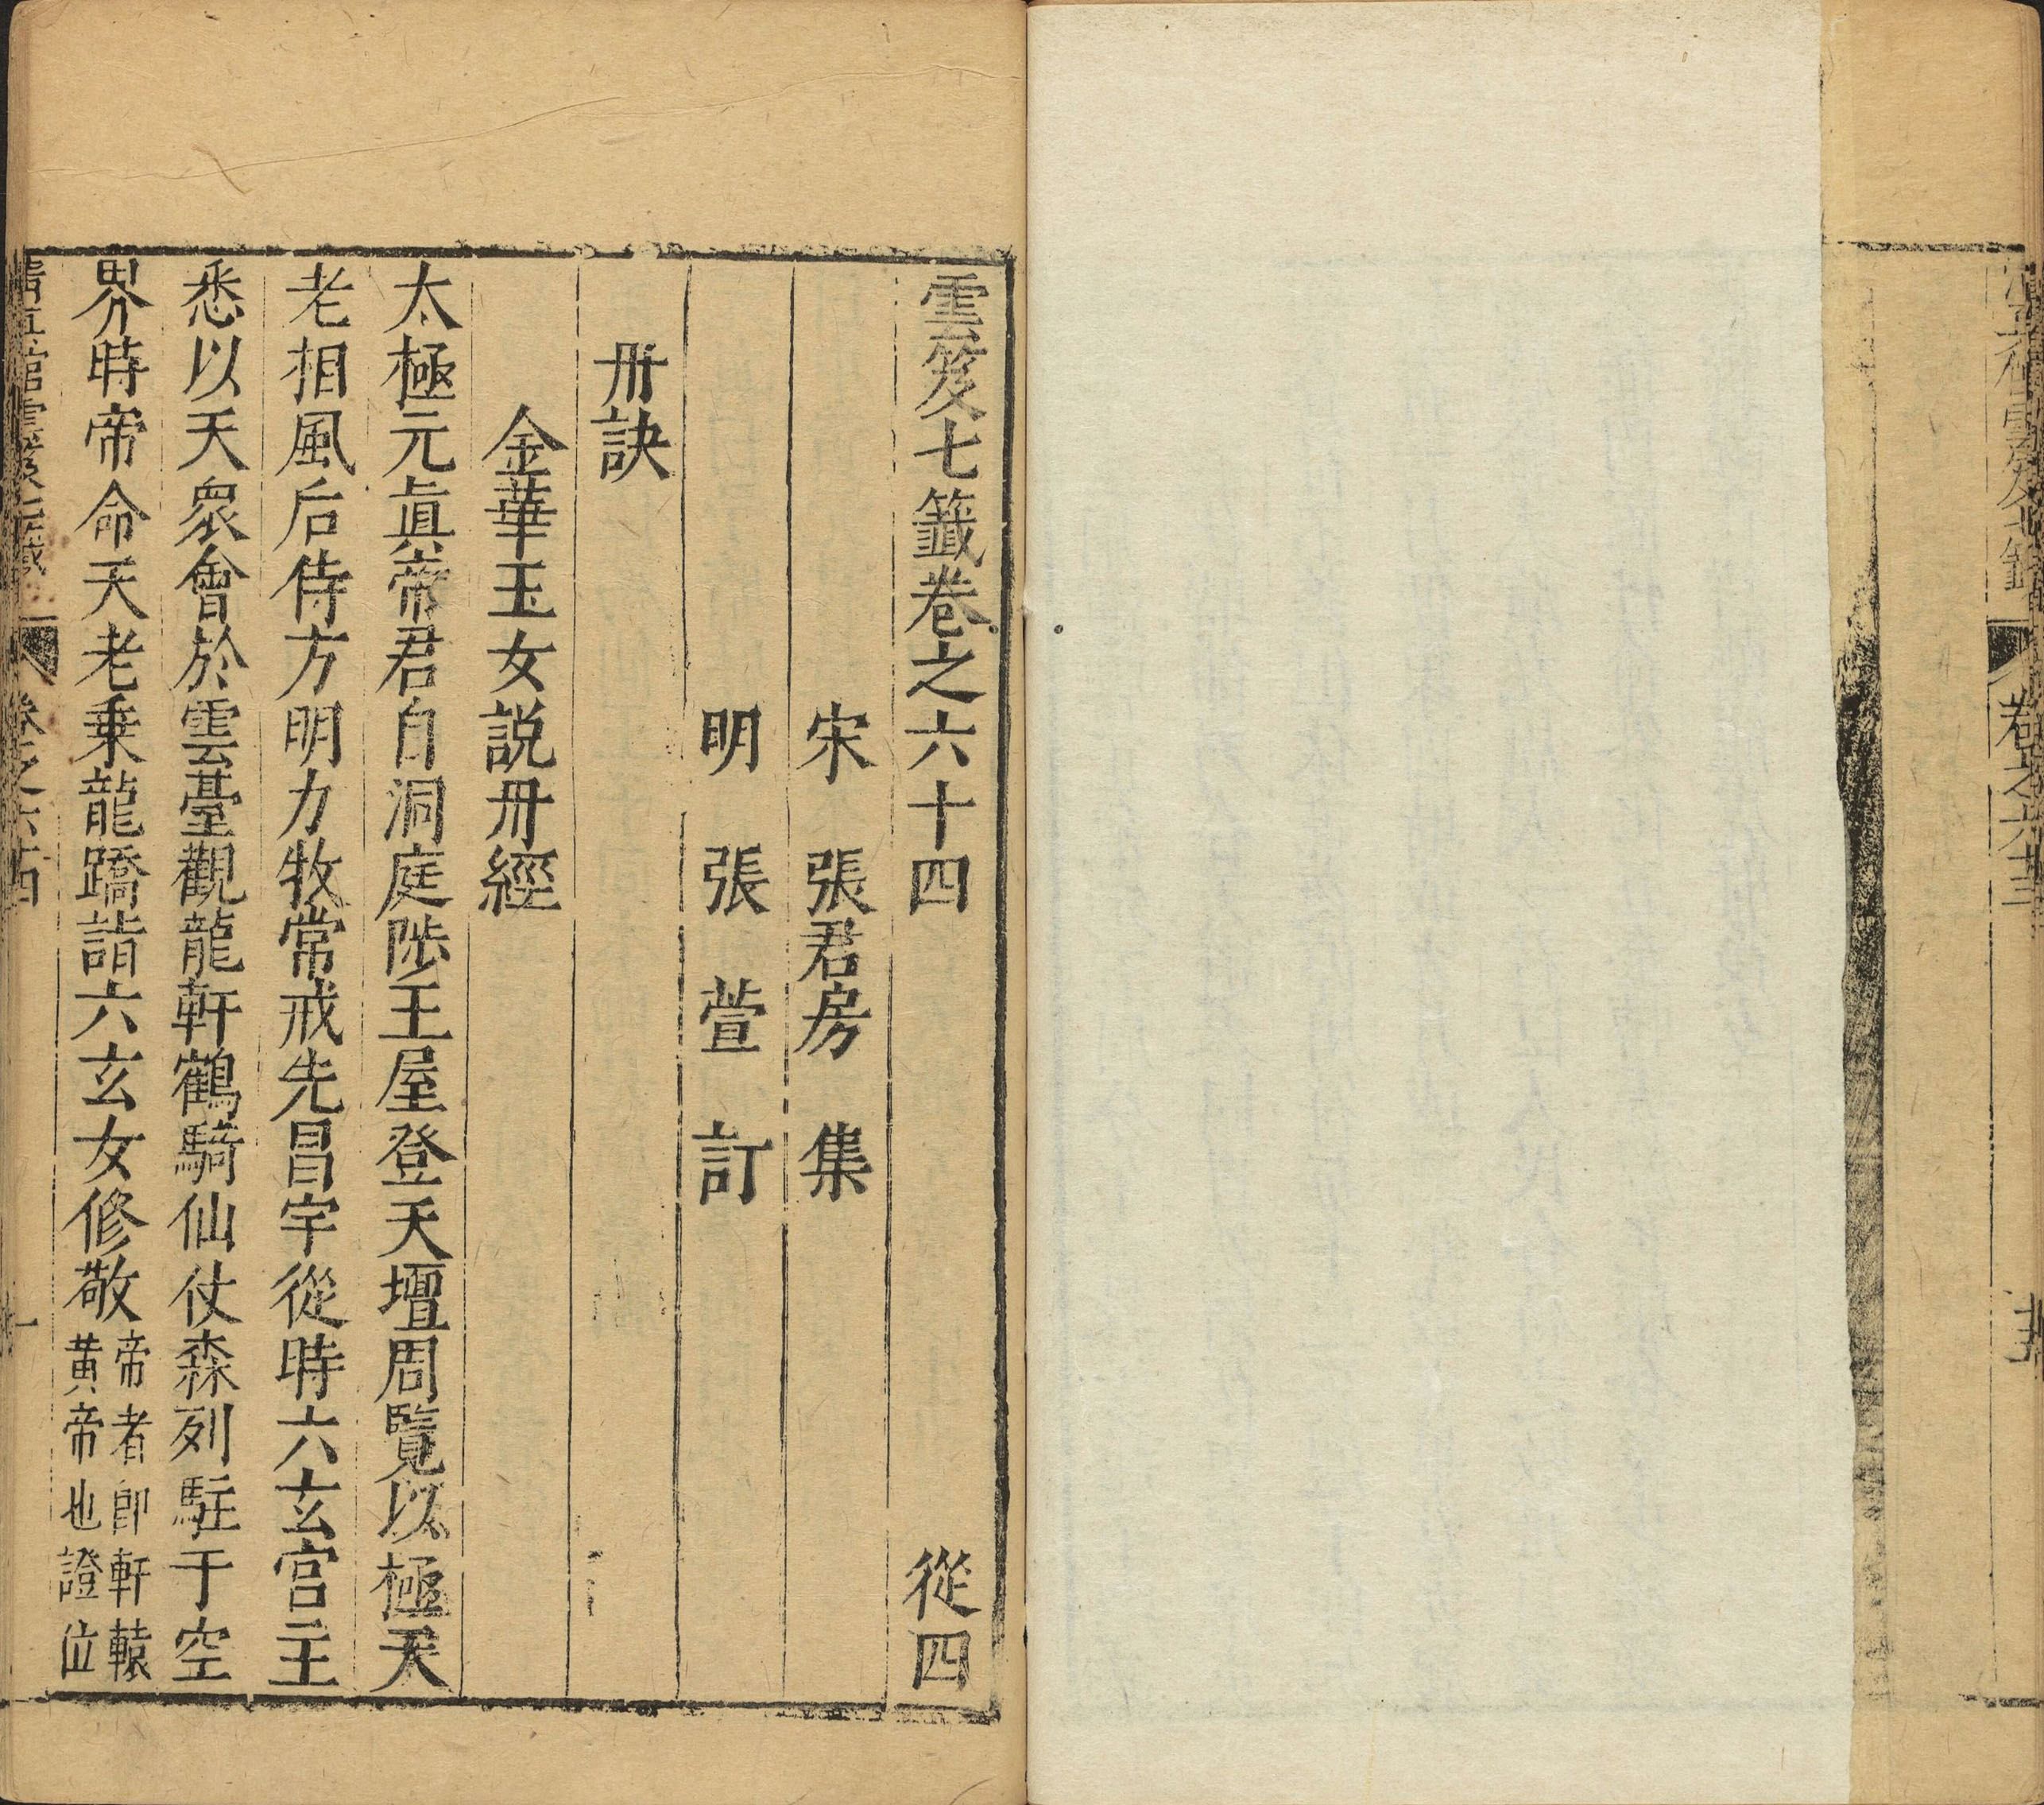 雲笈七籤卷之六十四　從四
宋　張君房　集
明　張　萱　訂
丹訣
金華玉女説丹經
太極元眞帝君自洞庭陟王屋登天壇周覽以極天
老相風后侍方明力牧常戒先昌宇從時六玄宮主
悉以天衆會於雲臺觀龍軒鶴騎仙仗森列駐于空
界時帝命天老乗龍蹻詣六玄女修敬帝者即軒轅
黄帝也證位
卷之六十四
一
卷之六十三